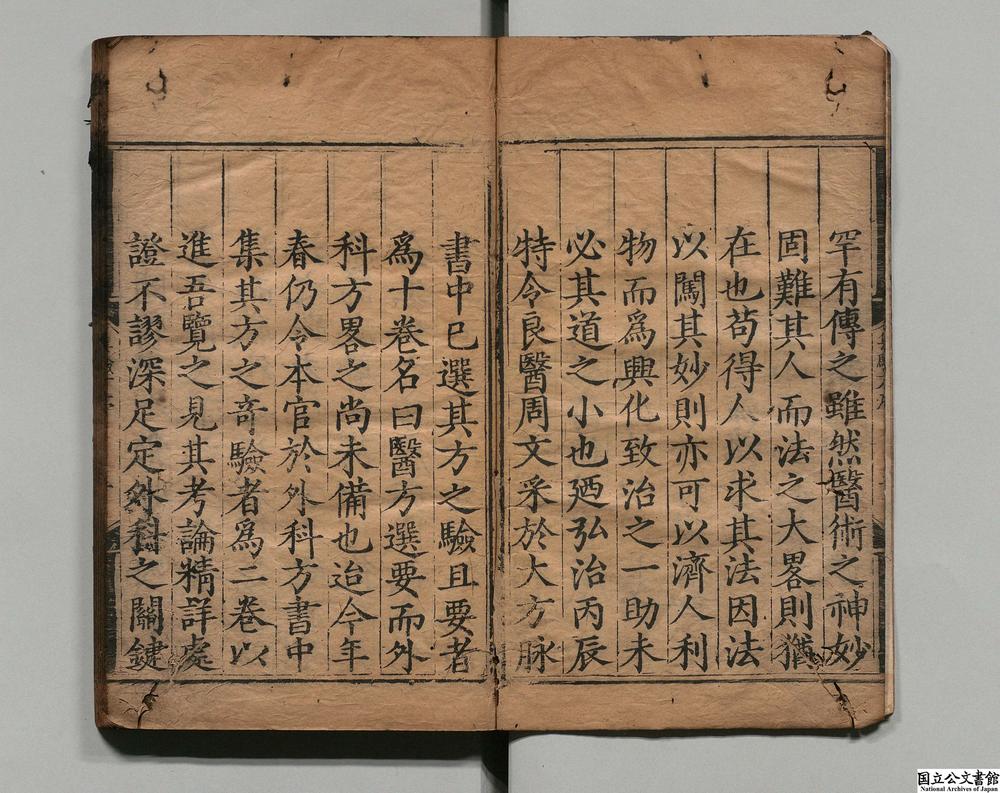 罕有傳之雖然醫術之神妙
固難其人而法之大畧則猶
在也苟得人以求其法因法
以闖其妙則亦可以濟人利
物而爲興化致治之一助未
必其道之小也廼弘治丙辰
特令良醫周文采於大方脉
書中已選其方之驗且要者
爲十卷名曰醫方選要而外
科方畧之尚未備也迨今年
春仍令本官於外科方書中
集其方之奇驗者爲二卷以
進吾覽之見其考論精詳處
證不謬深足定外科之關鍵
国立公文書館
National Archives of Japan